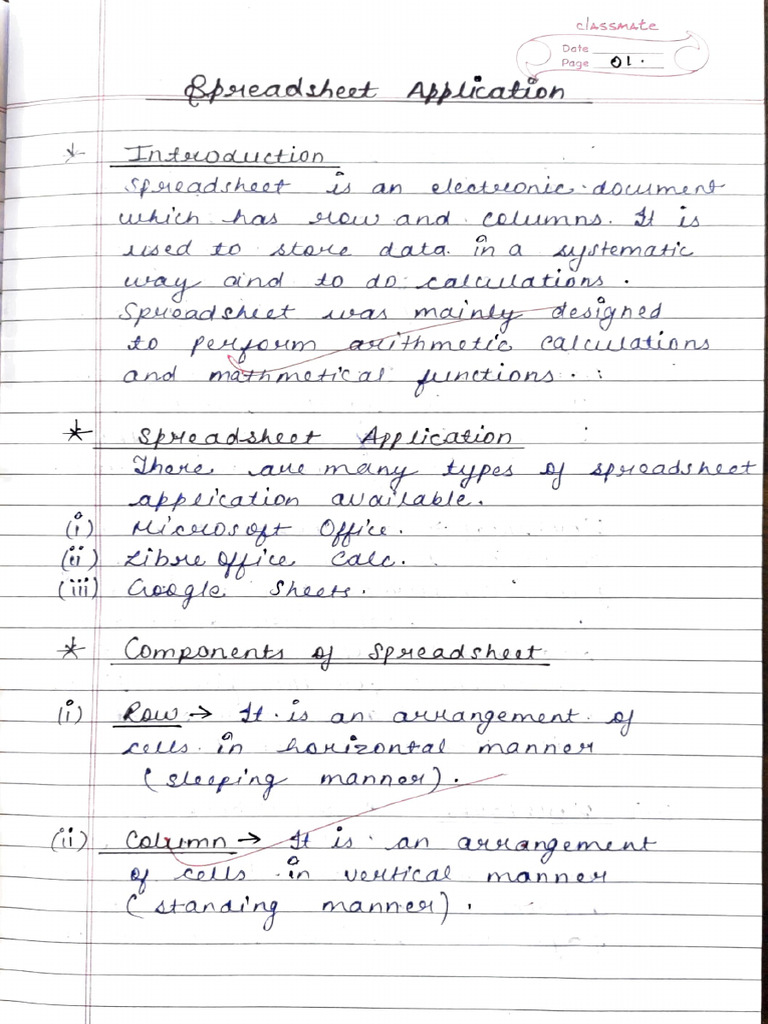 classmate
Date
Page 01.
Spreadsheet Application
* Introduction
Spreadsheet is an electronic document
which has row and columns. It is
used to store data in a systematic
way and to do calculations.
Spreadsheet was mainly designed
to perform arithmetic calculations
and mathmetical functions.
* Spreadsheet Application
There are many types of spreadsheet
application available.
(i) Microsoft Office.
(ii) Libre Office Calc.
(iii) Google Sheets.
* Components of Spreadsheet
(i) Row → It is an arrangement of
cells in horizontal manner
(sleeping manner).
(ii) Column → It is an arrangement
of cells in vertical manner
(standing manner).